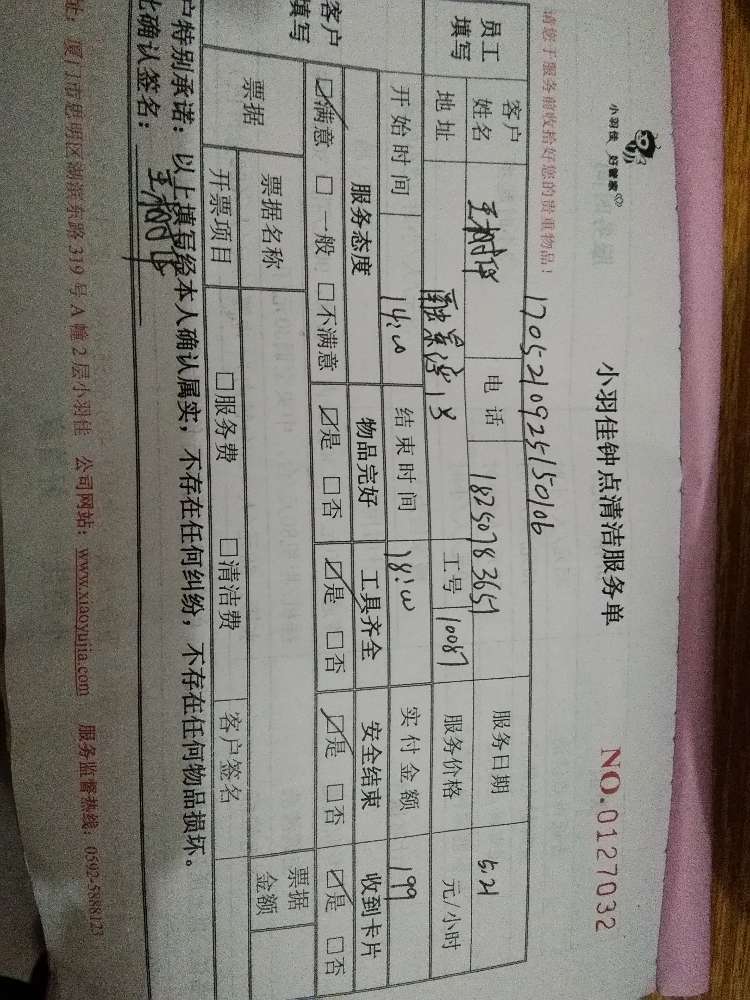 小羽佳 好管家
小羽佳钟点清洁服务单
NO.0127032
请您于服务前收拾好您的贵重物品！
170521092515010b
员工填写
客户姓名
电话
18250783659
服务日期
5.21
地址
工号
10087
服务价格
元/小时
开始时间
14:00
结束时间
18:00
实付金额
199
客户填写
服务态度
物品完好
工具齐全
安全结束
收到卡片
☑满意 □一般 □不满意
☑是 □否
☑是 □否
☑是 □否
☑是 □否
票据
票据名称
票据金额
开票项目
□服务费 □清洁费
客户签名
户特别承诺：以上填写经本人确认属实，不存在任何纠纷，不存在任何物品损坏。
此确认签名：
址：厦门市思明区湖滨东路319号A幢2层小羽佳 公司网站：www.xiaoyujia.com 服务监督热线：0592-5888123